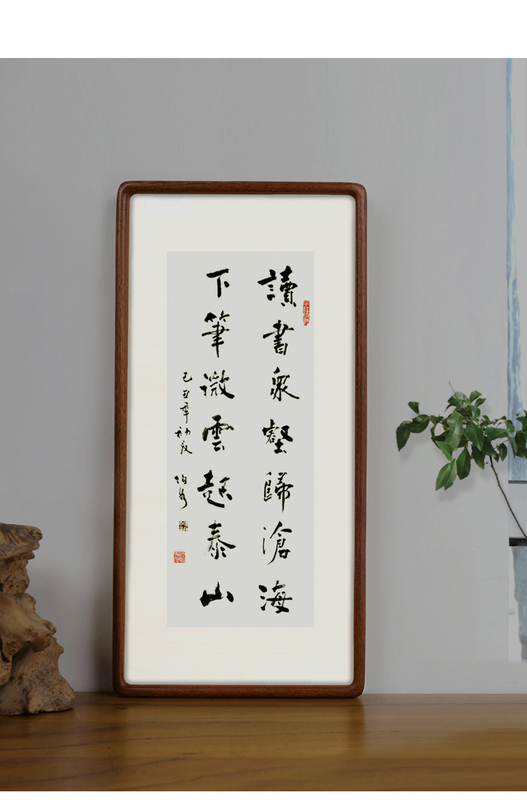 讀書衆壑歸滄海
下筆微雲起泰山
己丑年初夏